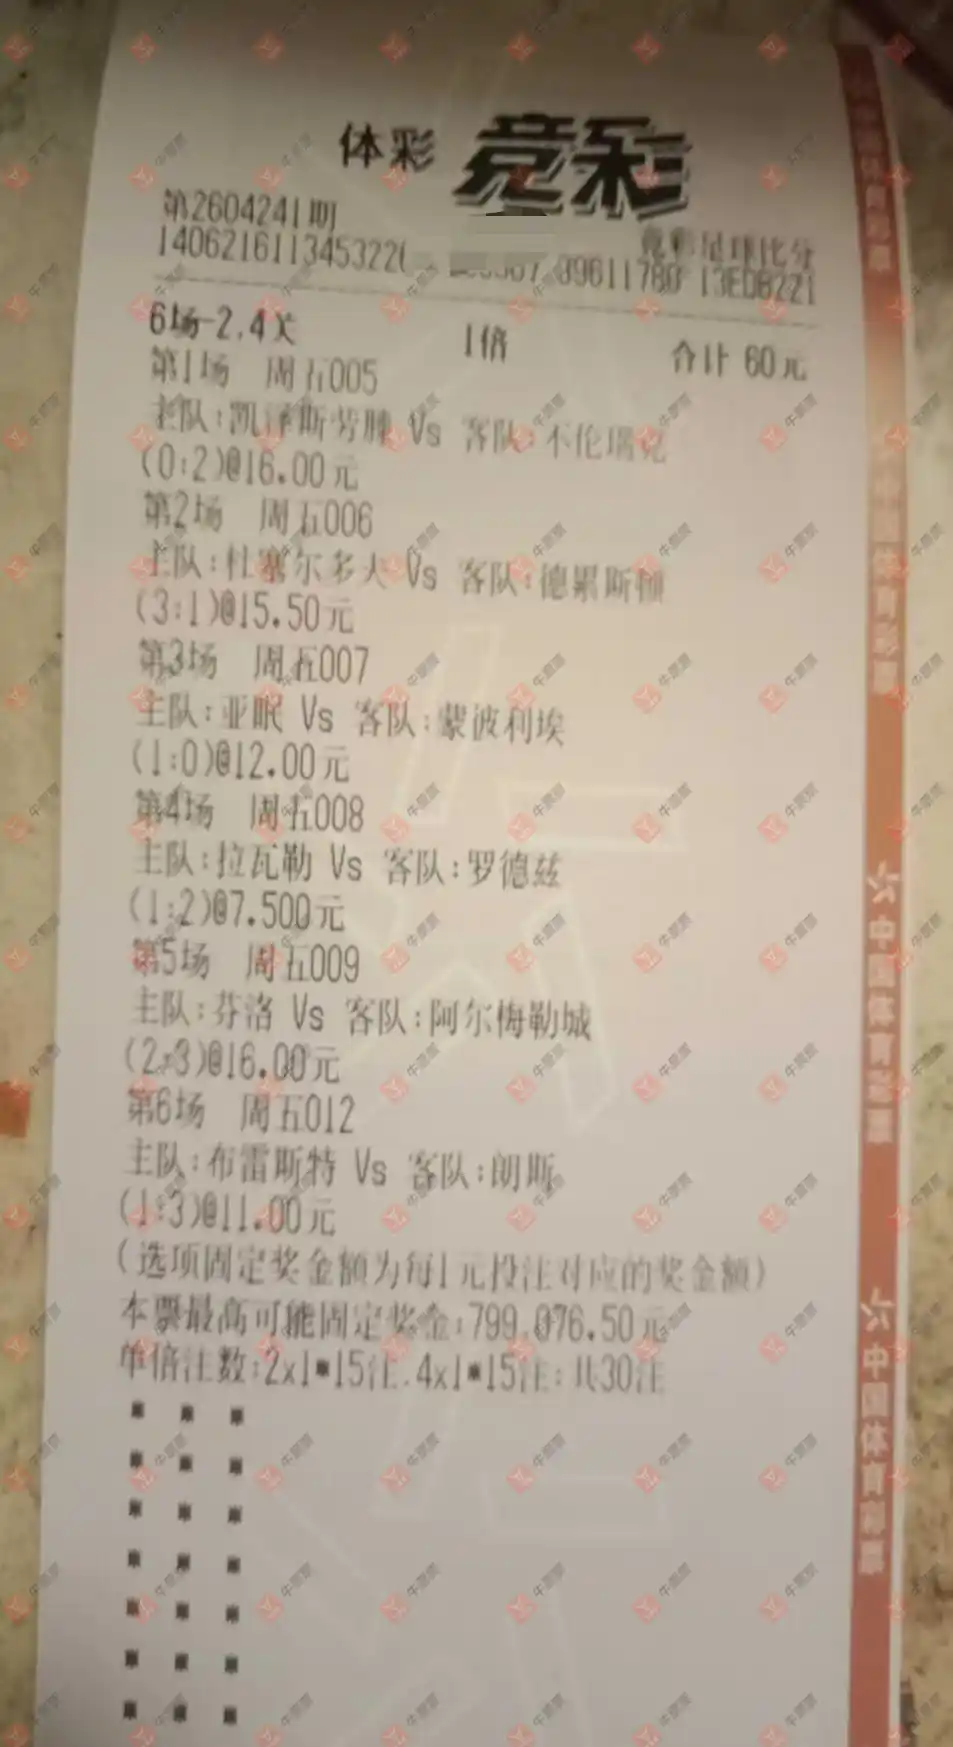 体彩 竞彩
第2604241期
竞彩足球比分
140621611345322 39611780 13EDB221
6场-2.4关 1倍 合计 60元
第1场 周五005
主队:凯泽斯劳滕 Vs 客队:不伦瑞克
(0:2)@16.00元
第2场 周五006
主队:杜塞尔多夫 Vs 客队:德累斯顿
(3:1)@15.50元
第3场 周五007
主队:亚眠 Vs 客队:蒙彼利埃
(1:0)@12.00元
第4场 周五008
主队:拉瓦勒 Vs 客队:罗德兹
(1:2)@7.500元
第5场 周五009
主队:芬洛 Vs 客队:阿尔梅勒城
(2:3)@16.00元
第6场 周五012
主队:布雷斯特 Vs 客队:朗斯
(1:3)@11.00元
(选项固定奖金额为每1元投注对应的奖金额)
本票最高可能固定奖金:799,076.50元
单倍注数:2x1*15注,4x1*15注;共30注
中国体育彩票
中国体育彩票
中国体育彩票
中国体育彩票